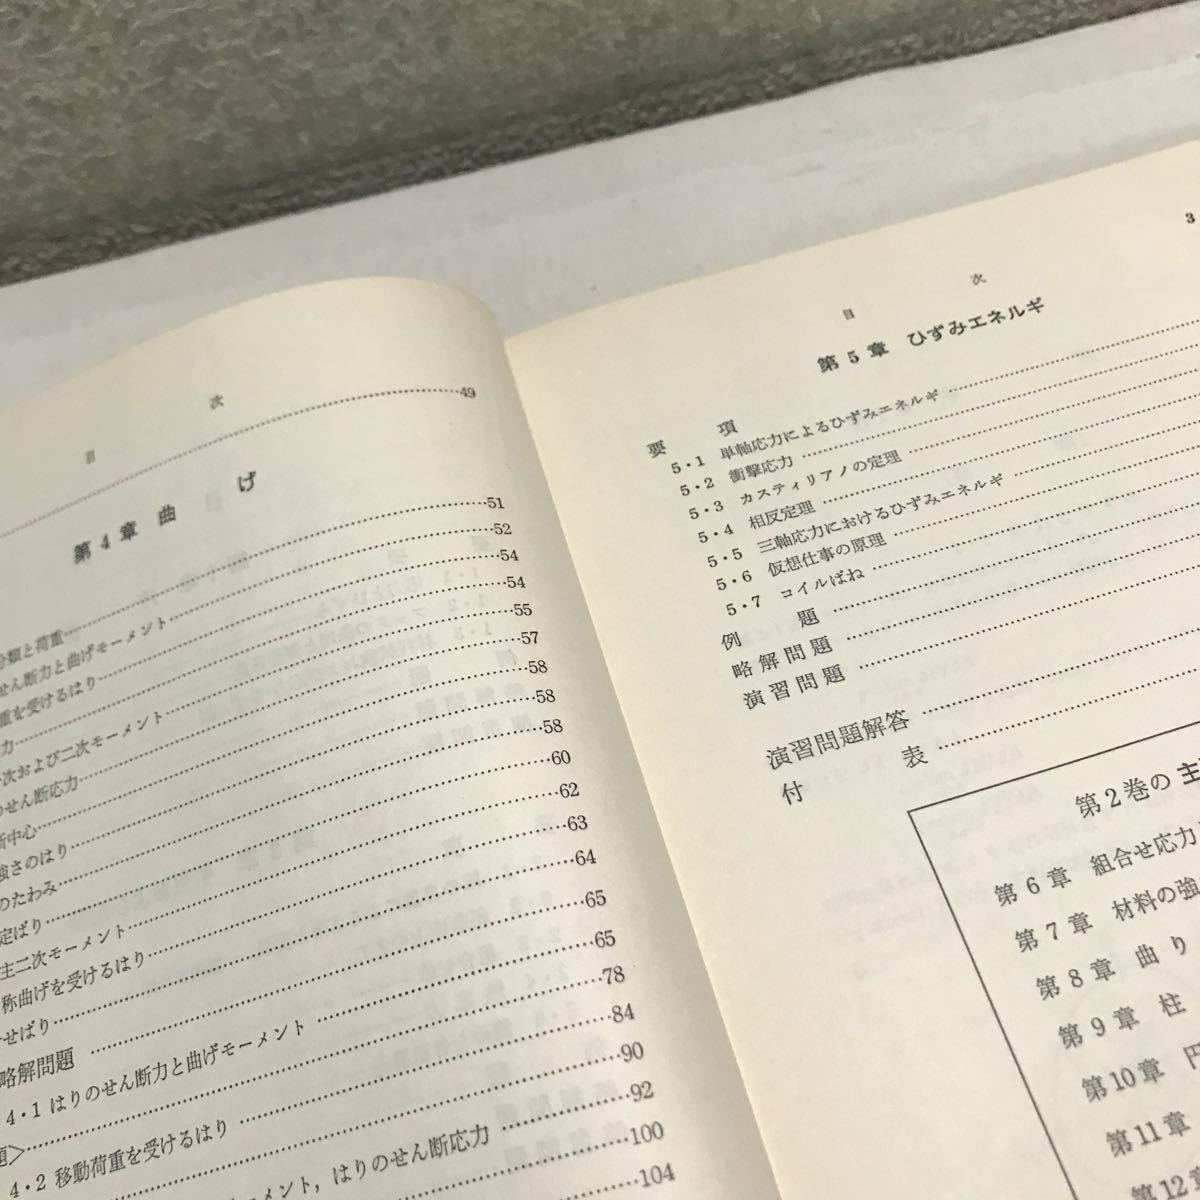 目　次
49
第4章 曲　げ
分類と荷重
51
せん断力と曲げモーメント
52
重を受けるはり
54
力
54
次および二次モーメント
55
のせん断応力
57
断中心
58
強さのはり
58
のたわみ
58
定ばり
60
主二次モーメント
62
称曲げを受けるはり
63
せばり
64
略解問題
65
4・1 はりのせん断力と曲げモーメント
65
題>
78
4・2 移動荷重を受けるはり
84
90
92
ーメント，はりのせん断応力
100
104
3
目　次
第5章 ひずみエネルギ
要　項
5・1 単軸応力によるひずみエネルギ
5・2 衝撃応力
5・3 カスティリアノの定理
5・4 相反定理
5・5 三軸応力におけるひずみエネルギ
5・6 仮想仕事の原理
5・7 コイルばね
例　題
略解問題
演習問題
演習問題解答
付　表
第2巻の 主
第6章 組合せ応力
第7章 材料の強
第8章 曲り
第9章 柱
第10章 円
第11章
第12章